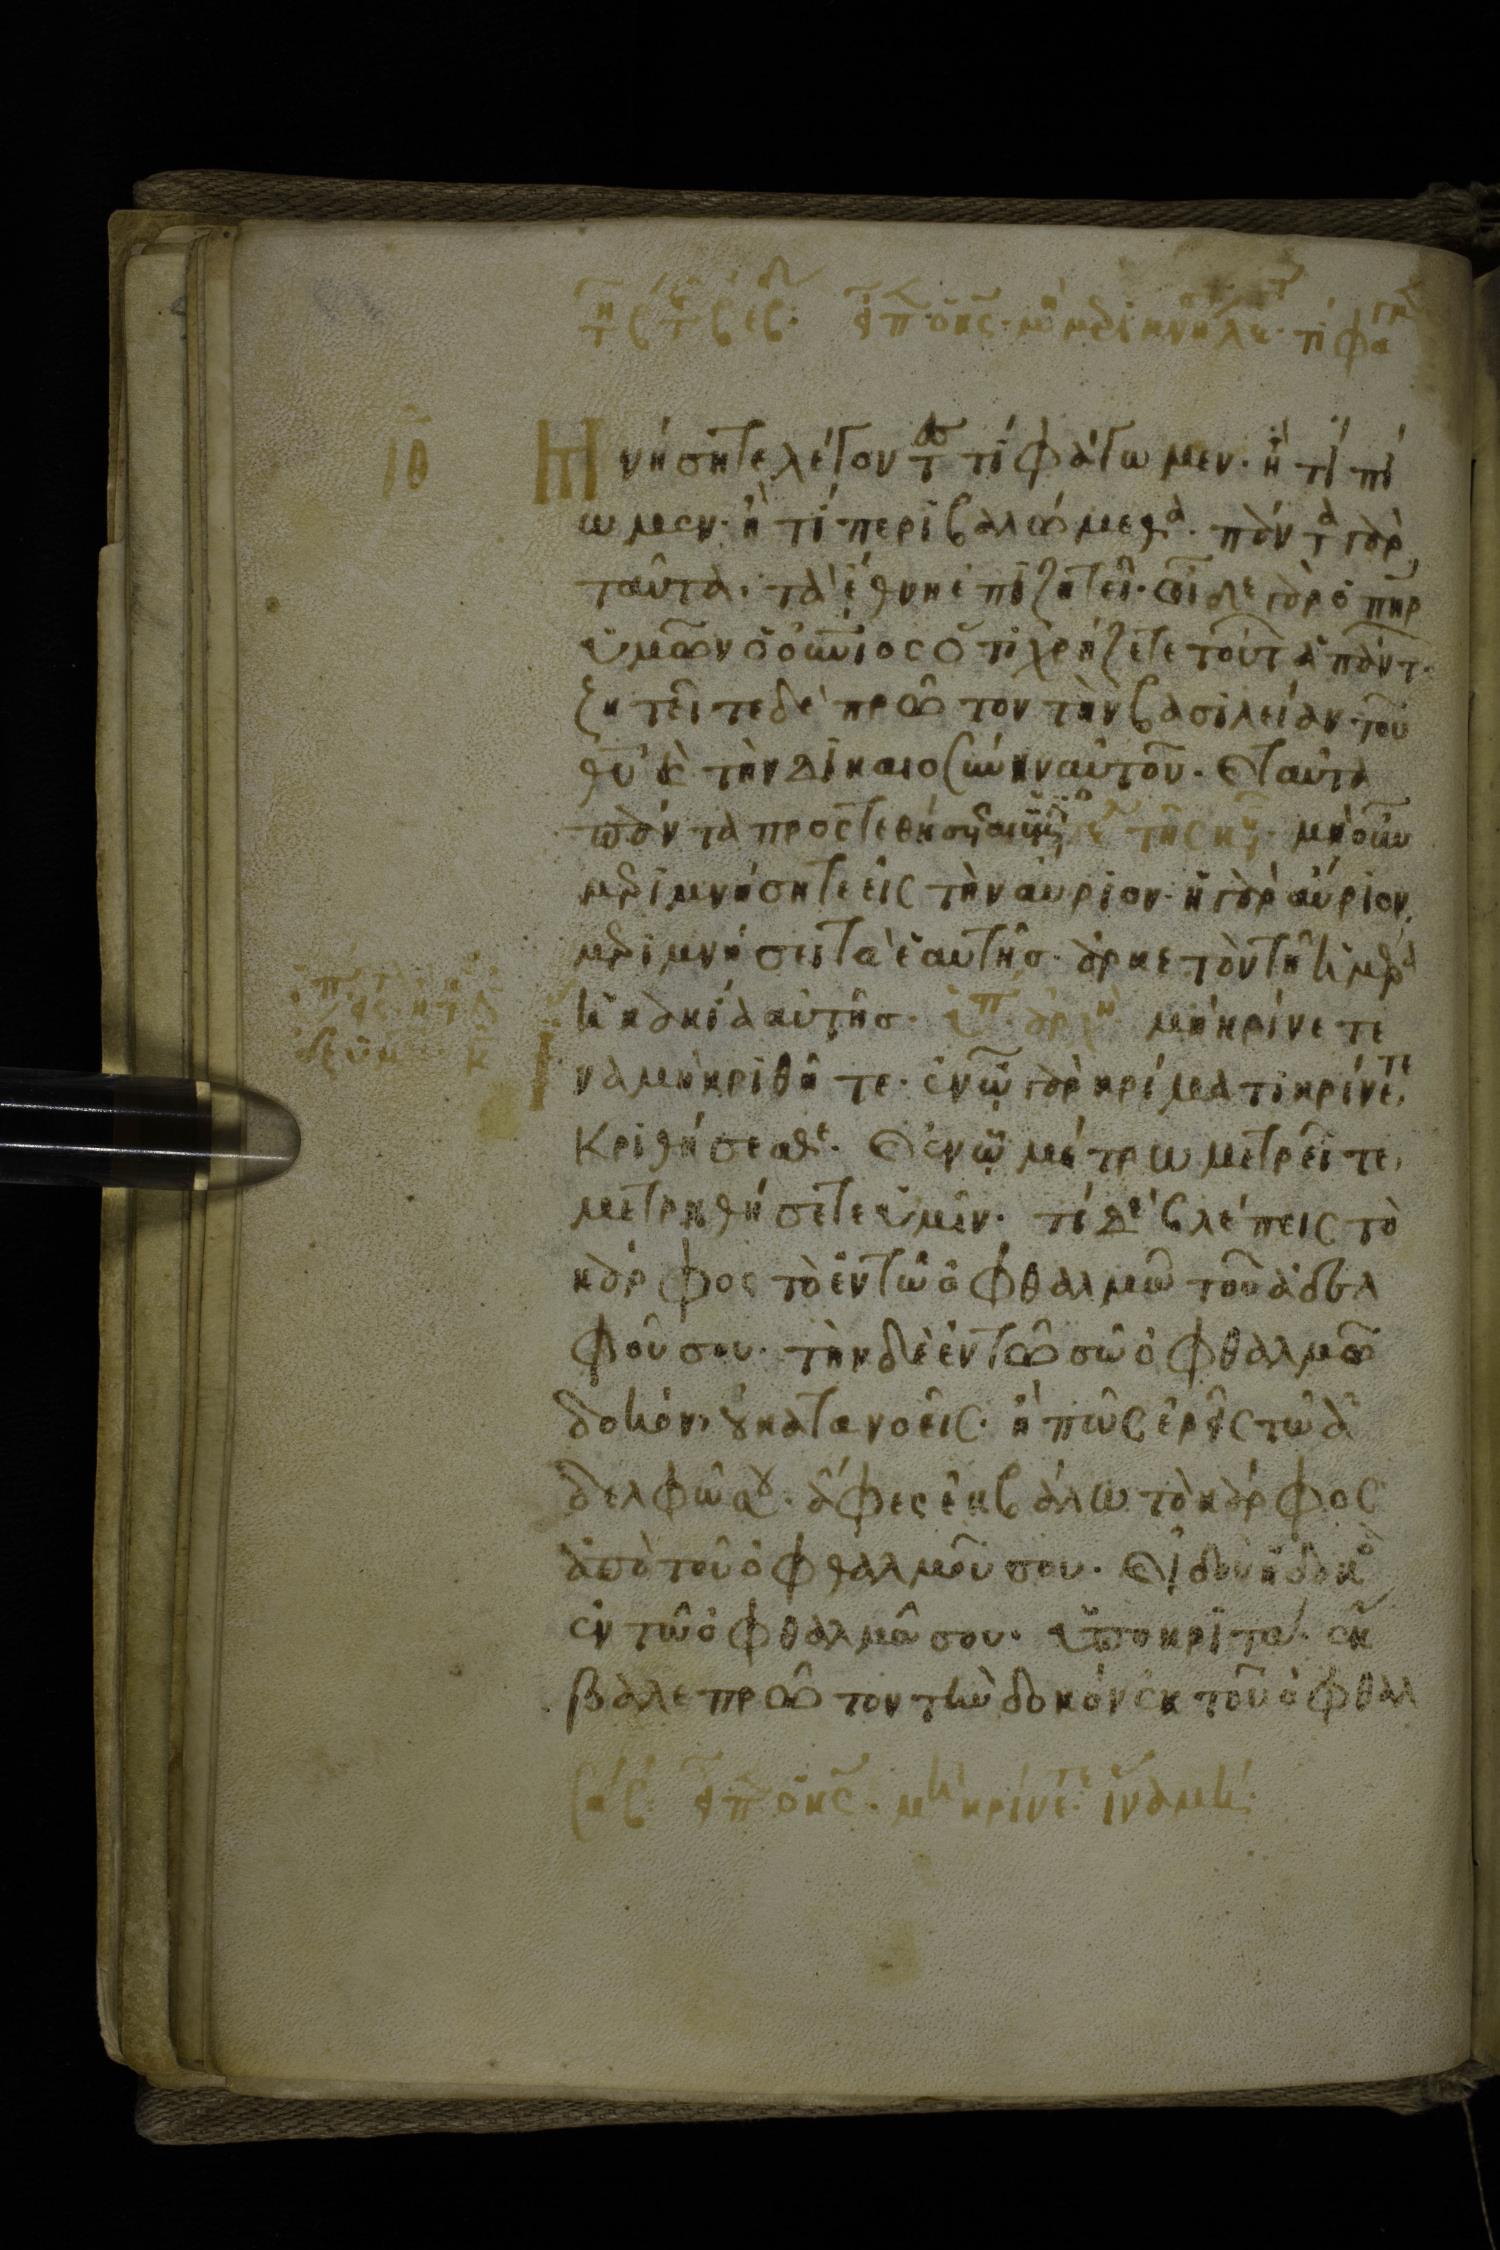 ιθ
Μη νήσητε λέγοντ τί φάγωμεν· ἢ τί πί
ωμεν· ἢ τί περιβαλώμεθα· πάντα γὰρ
ταῦτα, τὰ ἔθνη ἐπιζητεῖ· οἶδε γὰρ ὁ πηρ
ὑμῶν ὁ οὐνιος ὅτι χρήζετε τούτ ἁπάντ·
ζητεῖτε δὲ πρῶτον τὴν βασιλείαν τοῦ
θυ κ τὴν δικαιοσύνην αὐτοῦ. κ ταῦτα
πάντα προςτεθήσεται ὑμῖν τῆς μὴ οὖν
μεριμνήσητε εἰς τὴν αὔριον· ἡ γὰρ αὔριον
μεριμνήσει τὰ ἑαυτῆς· ἀρκετὸν τῆ ἡμέρα
ἡ κακία αὐτῆς· ἀρχὴ μὴ κρίνετε
ἵνα μὴ κριθῆτε· ἐν ᾧ γὰρ κρίματι κρίνετε,
κριθήσεσθε· κ ἐν ᾧ μέτρω μετρεῖτε,
μετρηθήσετε ὑμῖν· τί δὲ βλέπεις τὸ
κάρφος τὸ ἐν τῶ ὀφθαλμῶ τοῦ ἀδελ
φοῦ σου· τὴν δὲ ἐν τῶ σῶ ὀφθαλμῶ
δοκόν, οὐ κατανοεῖς· ἢ πῶς ἐρεῖς τῶ ἀ
δελφῶ σου· ἄφες ἐκβάλω τὸ κάρφος
ἀπὸ τοῦ ὀφθαλμοῦ σου. κ ἰδοὺ ἡ δοκὸ
ἐν τῶ ὀφθαλμῶ σου· ὑποκριτά· ἔκ
βαλε πρῶτον τὴν δοκὸν ἐκ τοῦ ὀφθαλ
μὴ κρίνετε ἵνα μή